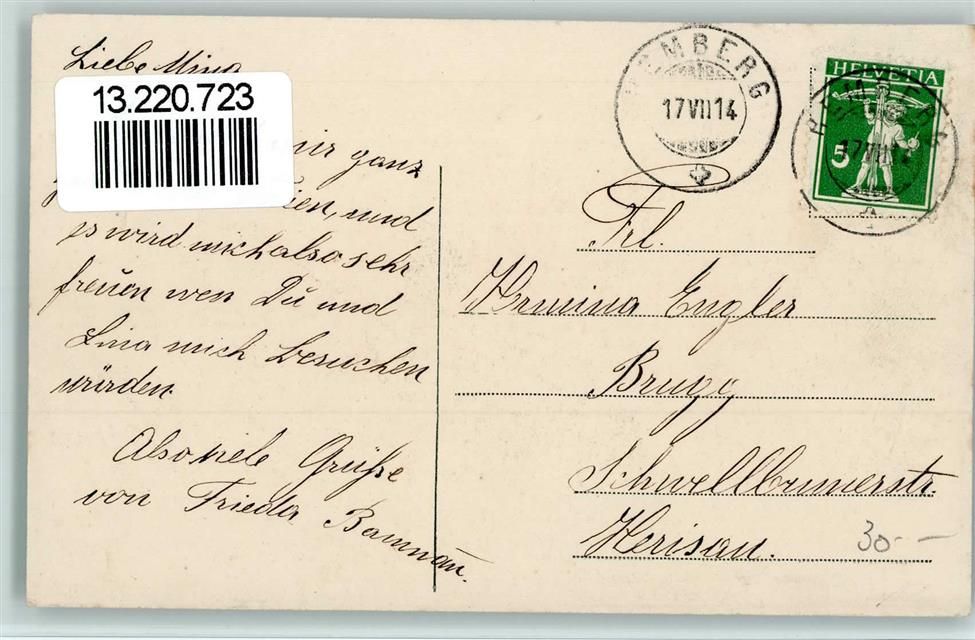 Liebe Mina
13.220.723
mir ganz
ien, und
es wird mich also sehr
freuen wen Du und
Lina mich besuchen
würden.
Also viele Grüsse
von Frieda
HEMBERG
17 VII 14
HELVETIA
5
HEMBERG
17 VII 14
Frl.
Hermina Engler
Brugg
Schwellbrunerstr.
Herisau.
30.-